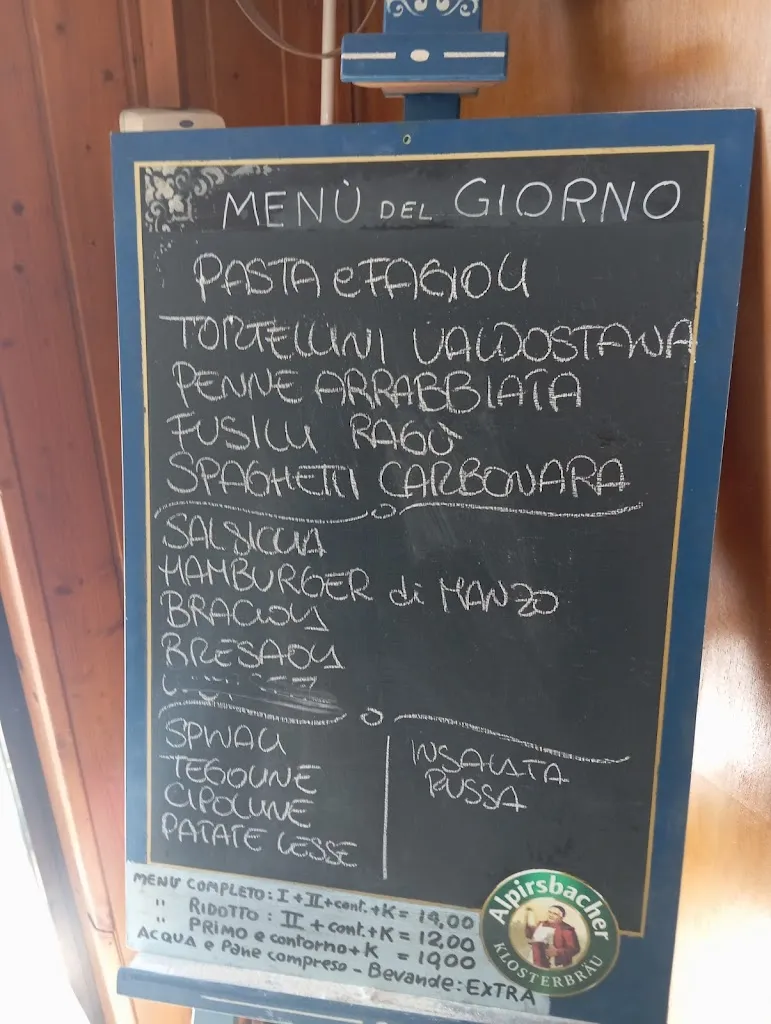 MENÙ DEL GIORNO
PASTA e FAGIOLI
TORTELLINI VALDOSTANA
PENNE ARRABBIATA
FUSILLI RAGÙ
SPAGHETTI CARBONARA
SALSICCIA
HAMBURGER di MANZO
BRACIOLA
BRESAOLA
SPINACI
TEGOLINE
CIPOLLINE
PATATE LESSE
INSALATA
RUSSA
MENÙ COMPLETO: I + II + cont. + K = 14,00
" RIDOTTO: II + cont. + K = 12,00
" PRIMO e contorno + K = 10,00
ACQUA e Pane compreso - Bevande: EXTRA
Alpirsbacher
KLOSTERBRÄU